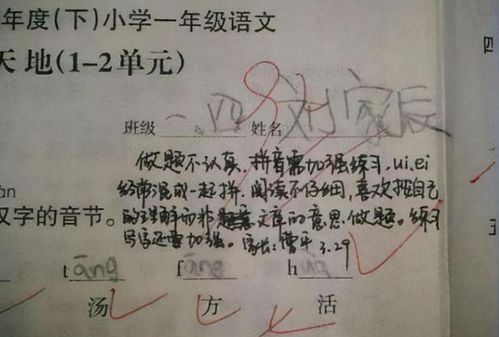 年度(下)小学一年级语文
天地(1-2单元)
四
班级 一 四 姓名 刘家辰
做题不认真,拼音需加强练习,ui、ei
经常混成一起拼,阅读不仔细,喜欢按自己
的理解而非文章的意思做题。练习
写字还需加强。家长:曹平 3.29
汉字的音节。
tāng fāng h
汤 方 活